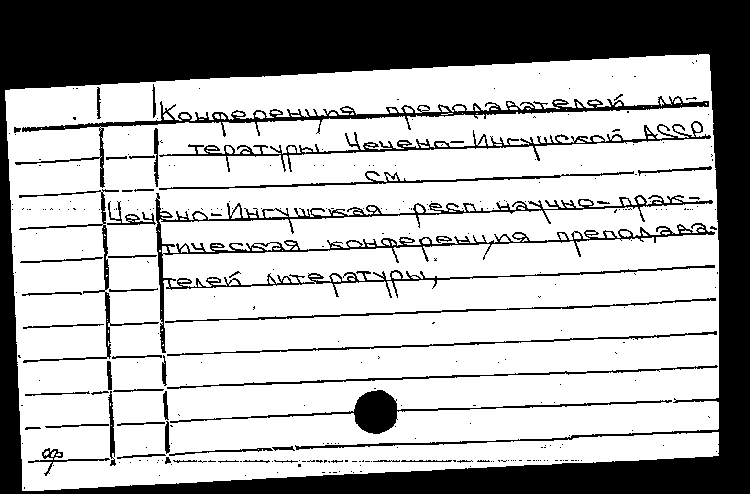 Конференция преподавателей ли-
тературы Чечено-Ингушской АССР
см.
Чечено-Ингушская респ. научно-прак-
тическая конференция преподава-
телей литературы,